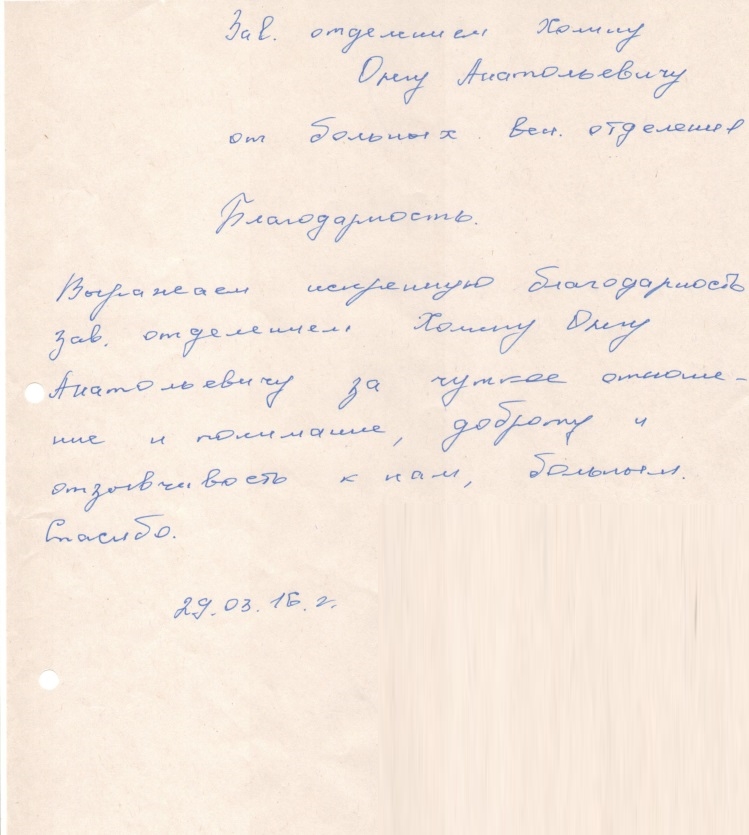 Зав. отделением Хомину
Олегу Анатольевичу
от больных вен. отделения
Благодарность.
Выражаем искреннюю благодарность
зав. отделением Хомину Олегу
Анатольевичу за чуткое отноше-
ние и понимание, доброту и
отзывчивость к нам, больным.
Спасибо.
29.03.16.г.